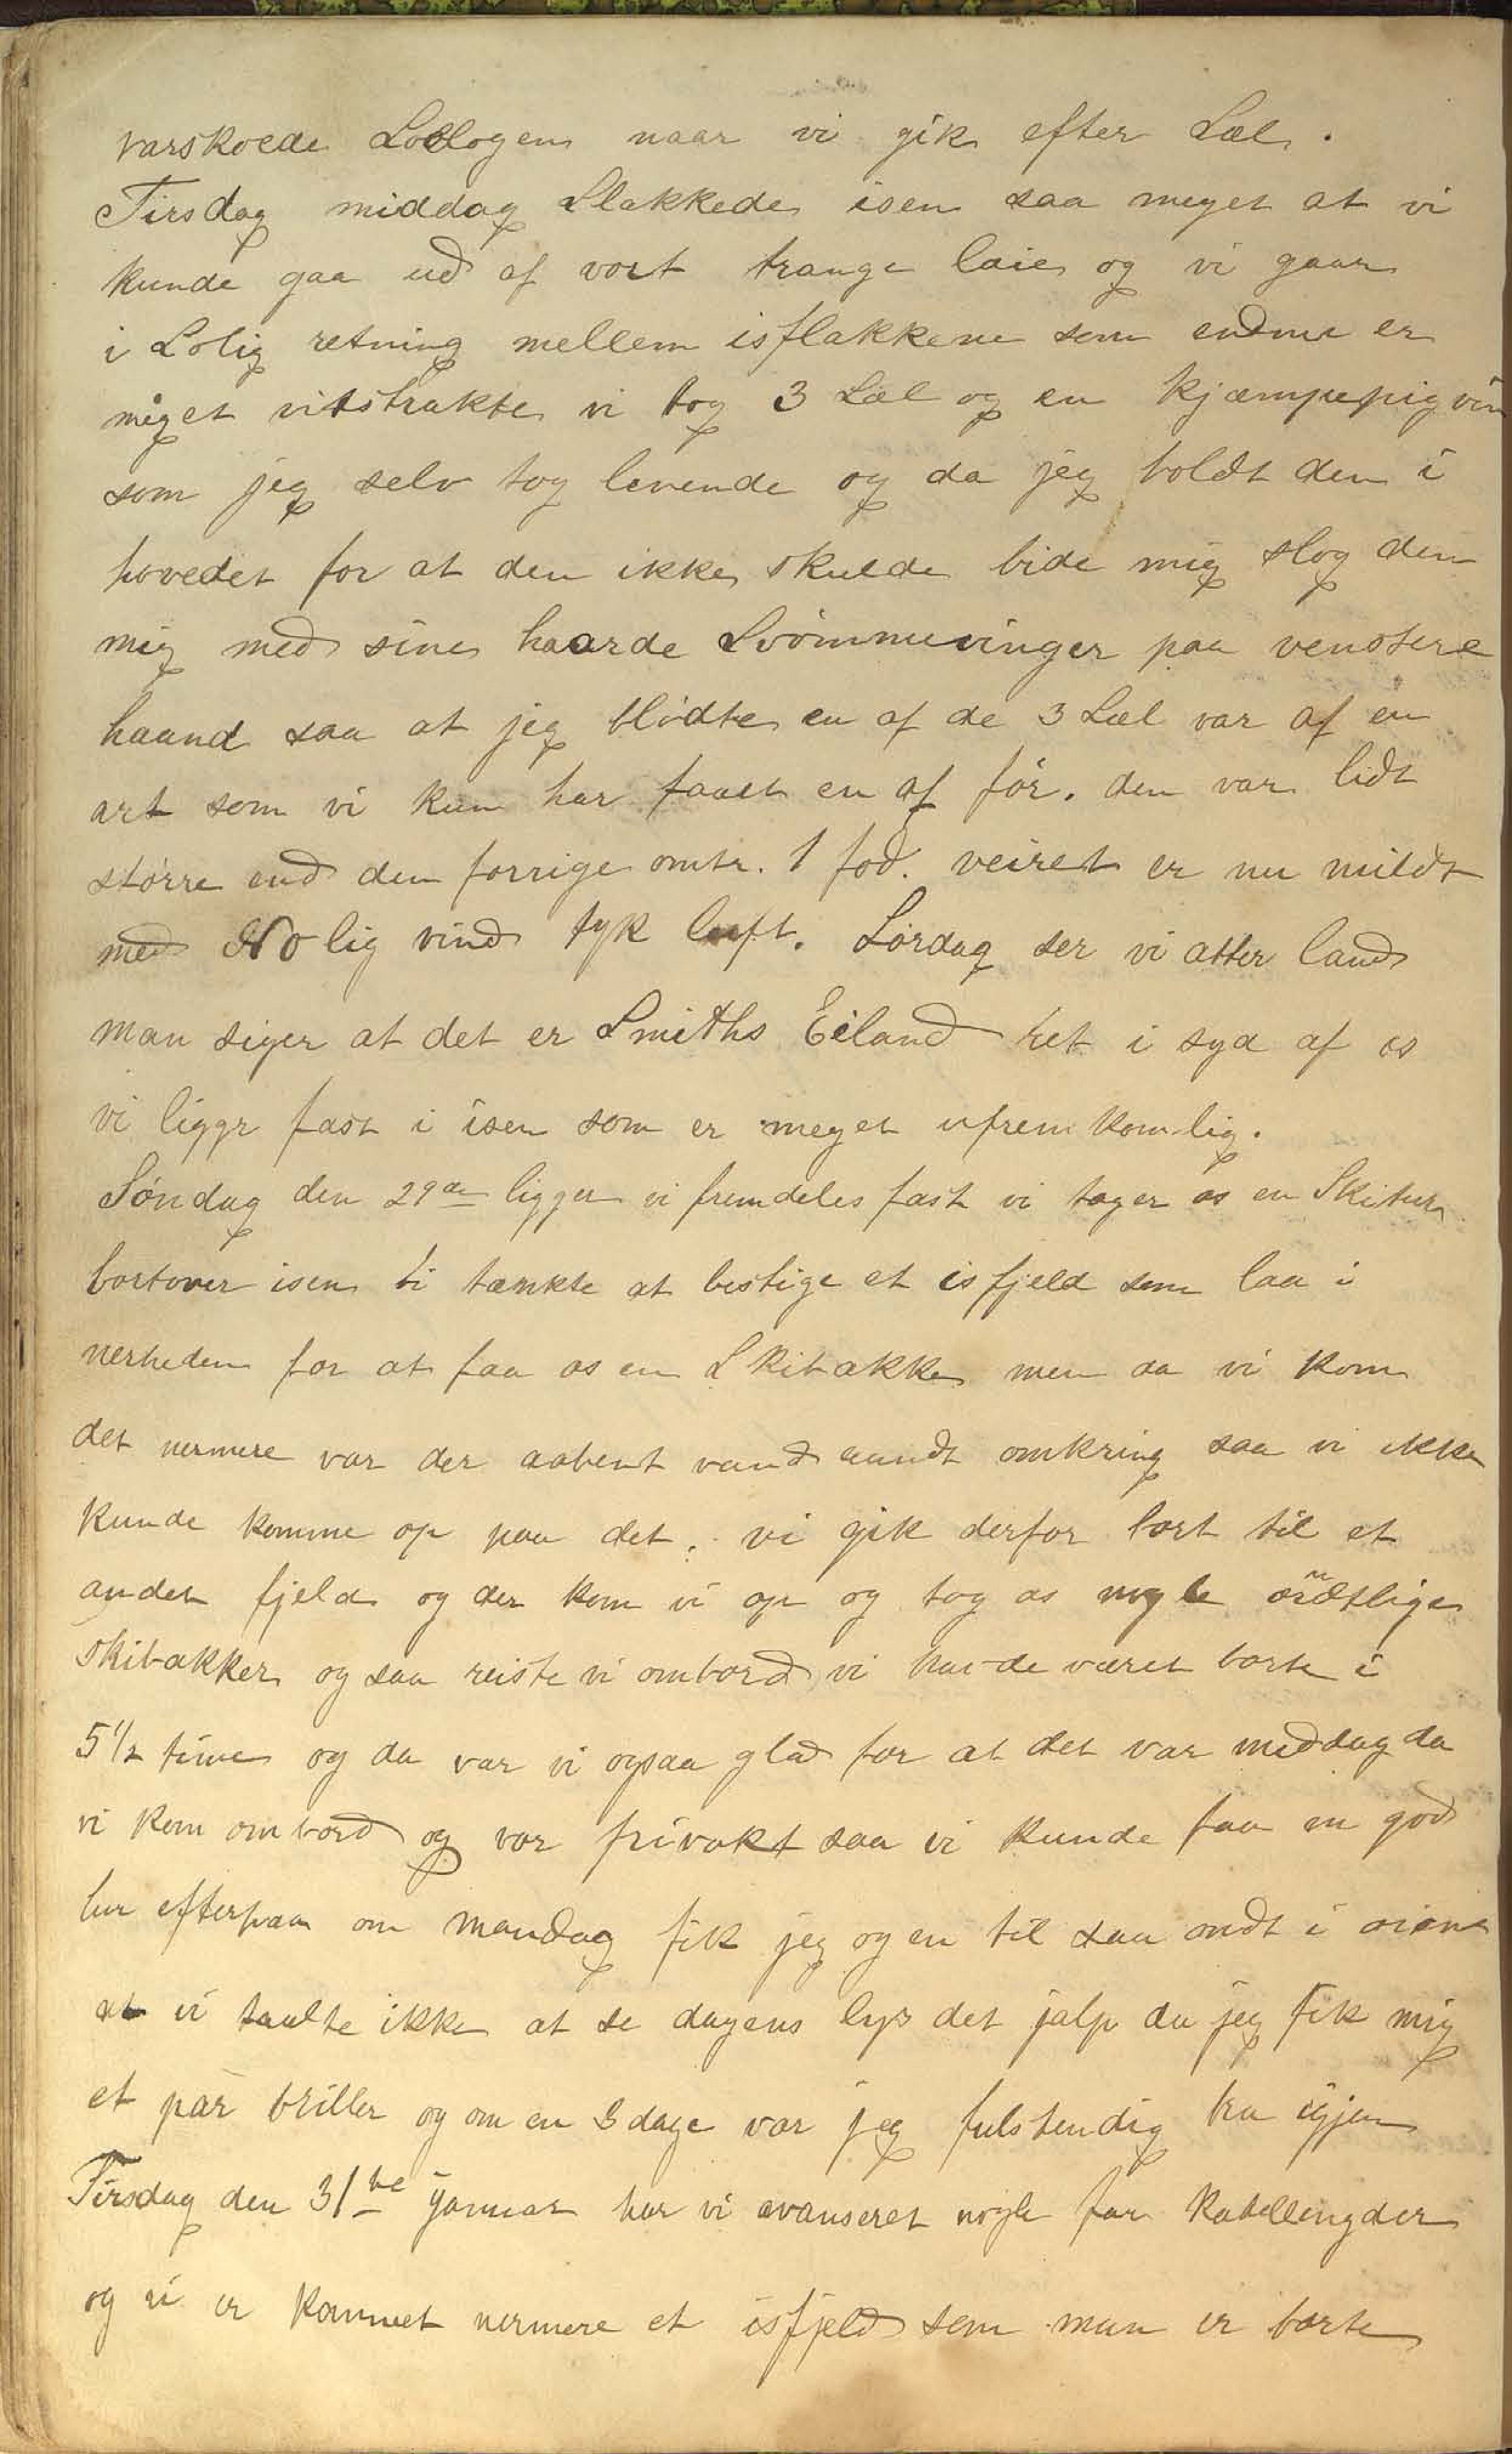 varskoede Zoologen naar vi gik efter Sæl.
Tirsdag middag Slakkede isen saa meget at vi
kunde gaa ud af vort trange laie og vi gaar
i Solig retning mellem isflakkene som endnu er
meget vitstrakte vi tog 3 Sæl og en kjæmpepigvin
som jeg selv tog levende og da jeg holdt den i
hovedet for at den ikke skulde bide mig slog den
mig med sine haarde Svömmevinger paa venstere
haand saa at jeg blödte en af de 3 Sæl var af en
art som vi kun har faaet en af för. den var lidt
större end den forrige omtr. 1 fod. veiret er nu mildt
med No lig vind tyk luft. Lördag ser vi atter land
man siger at det er Smiths Eiland ret i syd af os
vi liggr fast i isen som er meget ufremkomlig.
Söndag den 29de ligger vi fremdeles fast vi tager os en Skitur
bortover isen vi tænkte at bestige et isfjeld som laa i
nerheden for at faa os en Skibakke men da vi kom
det nermere var der aabent vand rundt omkring saa vi ikke
kunde komme op paa det. vi gik derfor bort til et
andet fjeld og der kom vi op og tog os nogle
skibakker og saa reiste vi ombord vi havde været borte i
5 1/2 time og da var vi ogsaa glad for at det var middag da
vi kom ombord og vor frivakt saa vi kunde faa en god
lur efterpaa om mandag fik jeg og en til saa ondt i öiene
at vi taalte ikke at se dagens lys det jalp da jeg fik mig
et par briller og om en 3 dage var jeg fulstendig bra igjen
Tirsdag den 31te januar har vi avanseret nogle faa Kabellengder
og vi er kommet nermere et isfjeld som man er borte